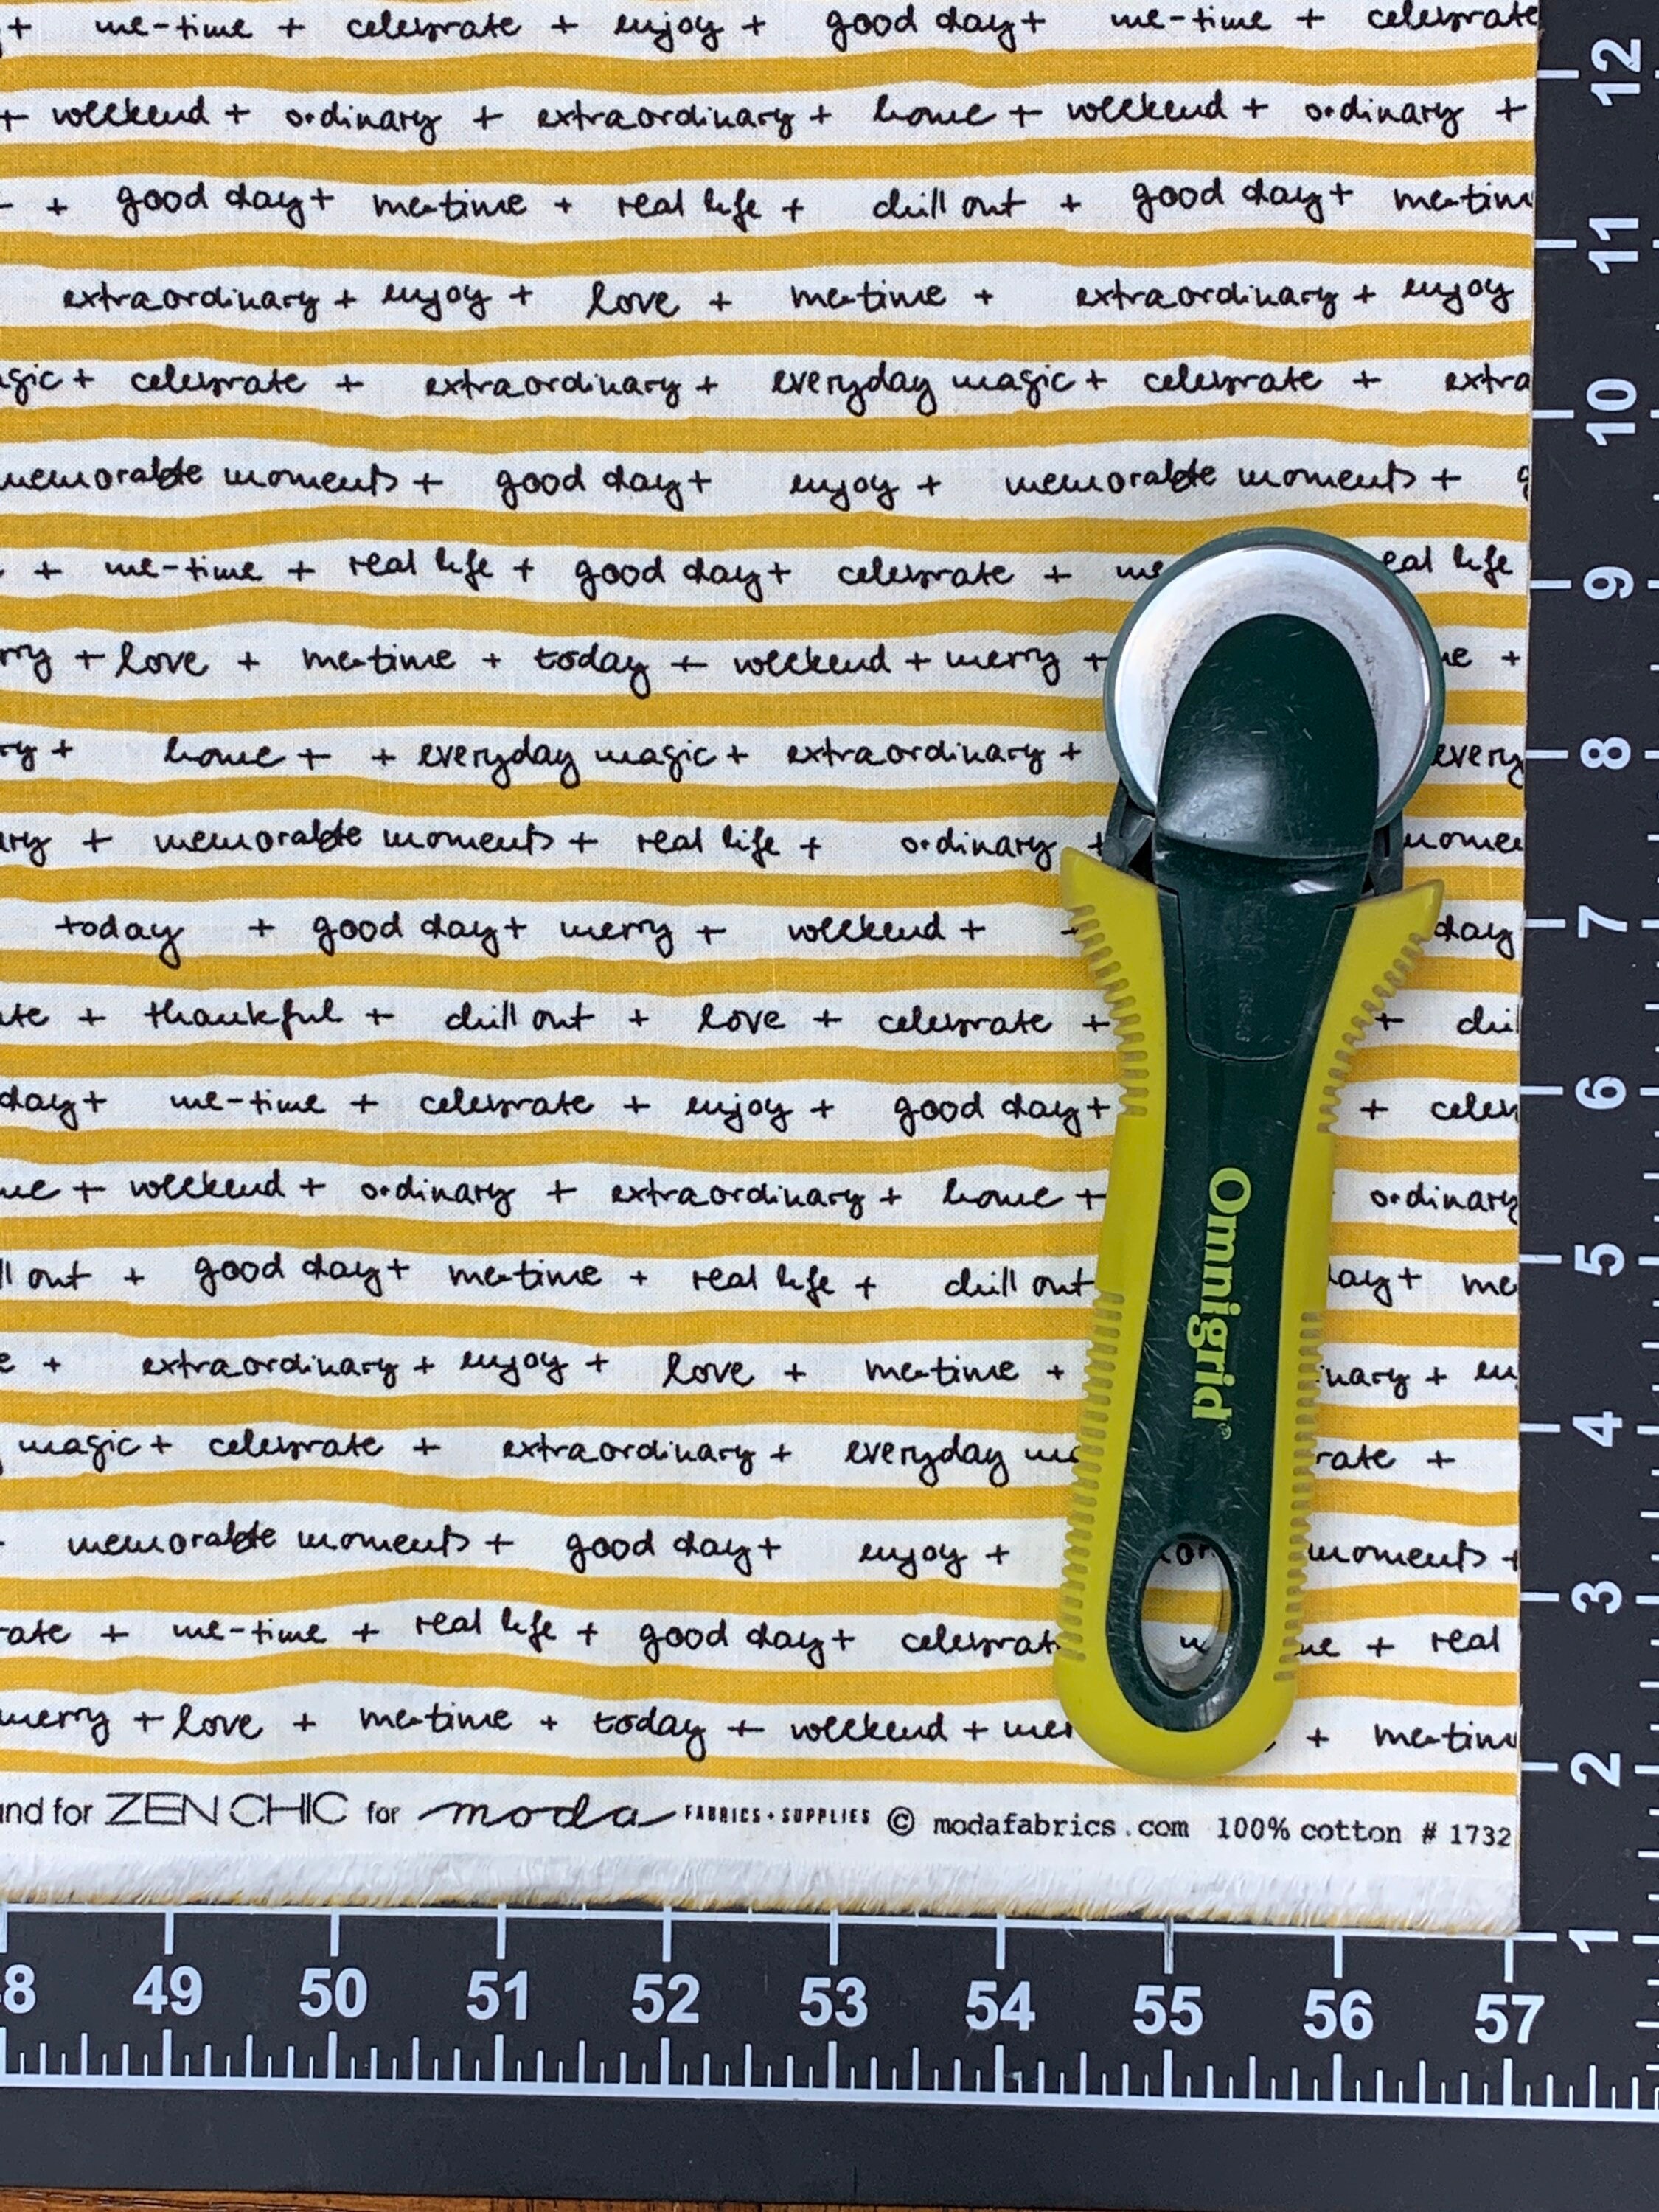 + me-time + celebrate + enjoy + good day + me-time + celebrate
+ weekend + ordinary + extraordinary + home + weekend + ordinary +
+ good day + me-time + real life + chill out + good day + me-time
extraordinary + enjoy + love + me-time + extraordinary + enjoy
gic + celebrate + extraordinary + everyday magic + celebrate + extra
memorable moments + good day + enjoy + memorable moments + g
+ me-time + real life + good day + celebrate + me eal life
rry + love + me-time + today + weekend + merry + me +
ry + home + + everyday magic + extraordinary + every
ary + memorable moments + real life + ordinary + mome
today + good day + merry + weekend + day
ate + thankful + chill out + love + celebrate + + chil
day + me-time + celebrate + enjoy + good day + + celeb
me + weekend + ordinary + extraordinary + home + ordinary
ll out + good day + me-time + real life + chill out day + me
e + extraordinary + enjoy + love + me-time + inary + en
magic + celebrate + extraordinary + everyday ma rate +
memorable moments + good day + enjoy + or moments +
rate + me-time + real life + good day + celebrat me + real
merry + love + me-time + today + weekend + mer + me-tim
und for ZEN CHIC for moda FABRICS + SUPPLIES © modafabrics.com 100% cotton # 1732
Omnigrid®
12
11
10
9
8
7
6
5
4
3
2
1
48 49 50 51 52 53 54 55 56 57